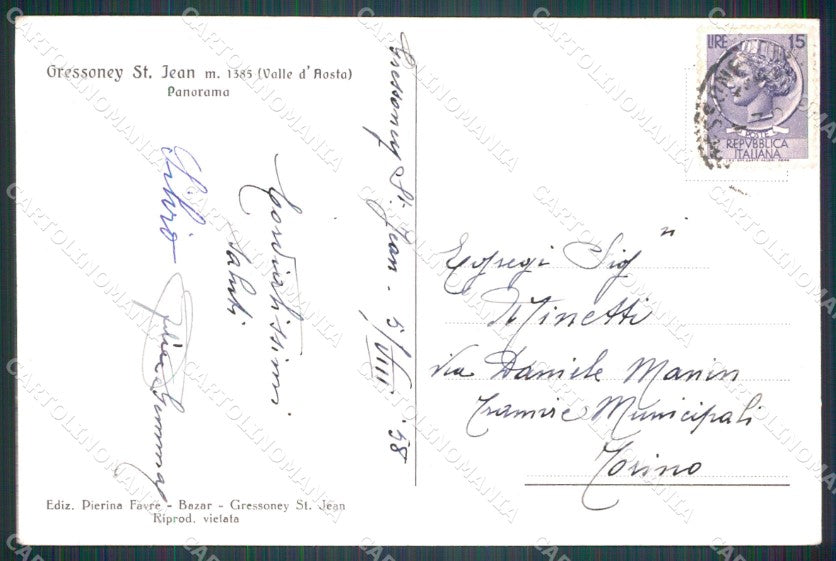 Gressoney St. Jean m. 1385 (Valle d'Aosta)
Panorama
Gressoney St Jean - 5/VIII '58
Cordialissimi
saluti
Silvio
Ediz. Pierina Favre - Bazar - Gressoney St. Jean
Riprod. vietata
LIRE 15
POSTE
REPVBBLICA
ITALIANA
Egregi Sigri
Minetti
Via Daniele Manin
Tranvie Municipali
Torino
CARTOLINOMANIA